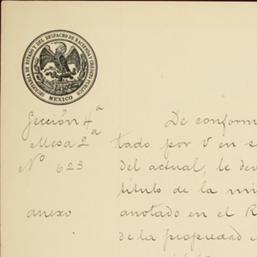 SECRETARIA DE ESTADO Y DEL DESPACHO DE HACIENDA Y CREDITO PUBLICO
MEXICO
Sección 4ª
Mesa 2ª
Nº 623
anexo
De conform
tado por V en s
del actual, le dev
título de la mi
anotado en el R
de la propiedad